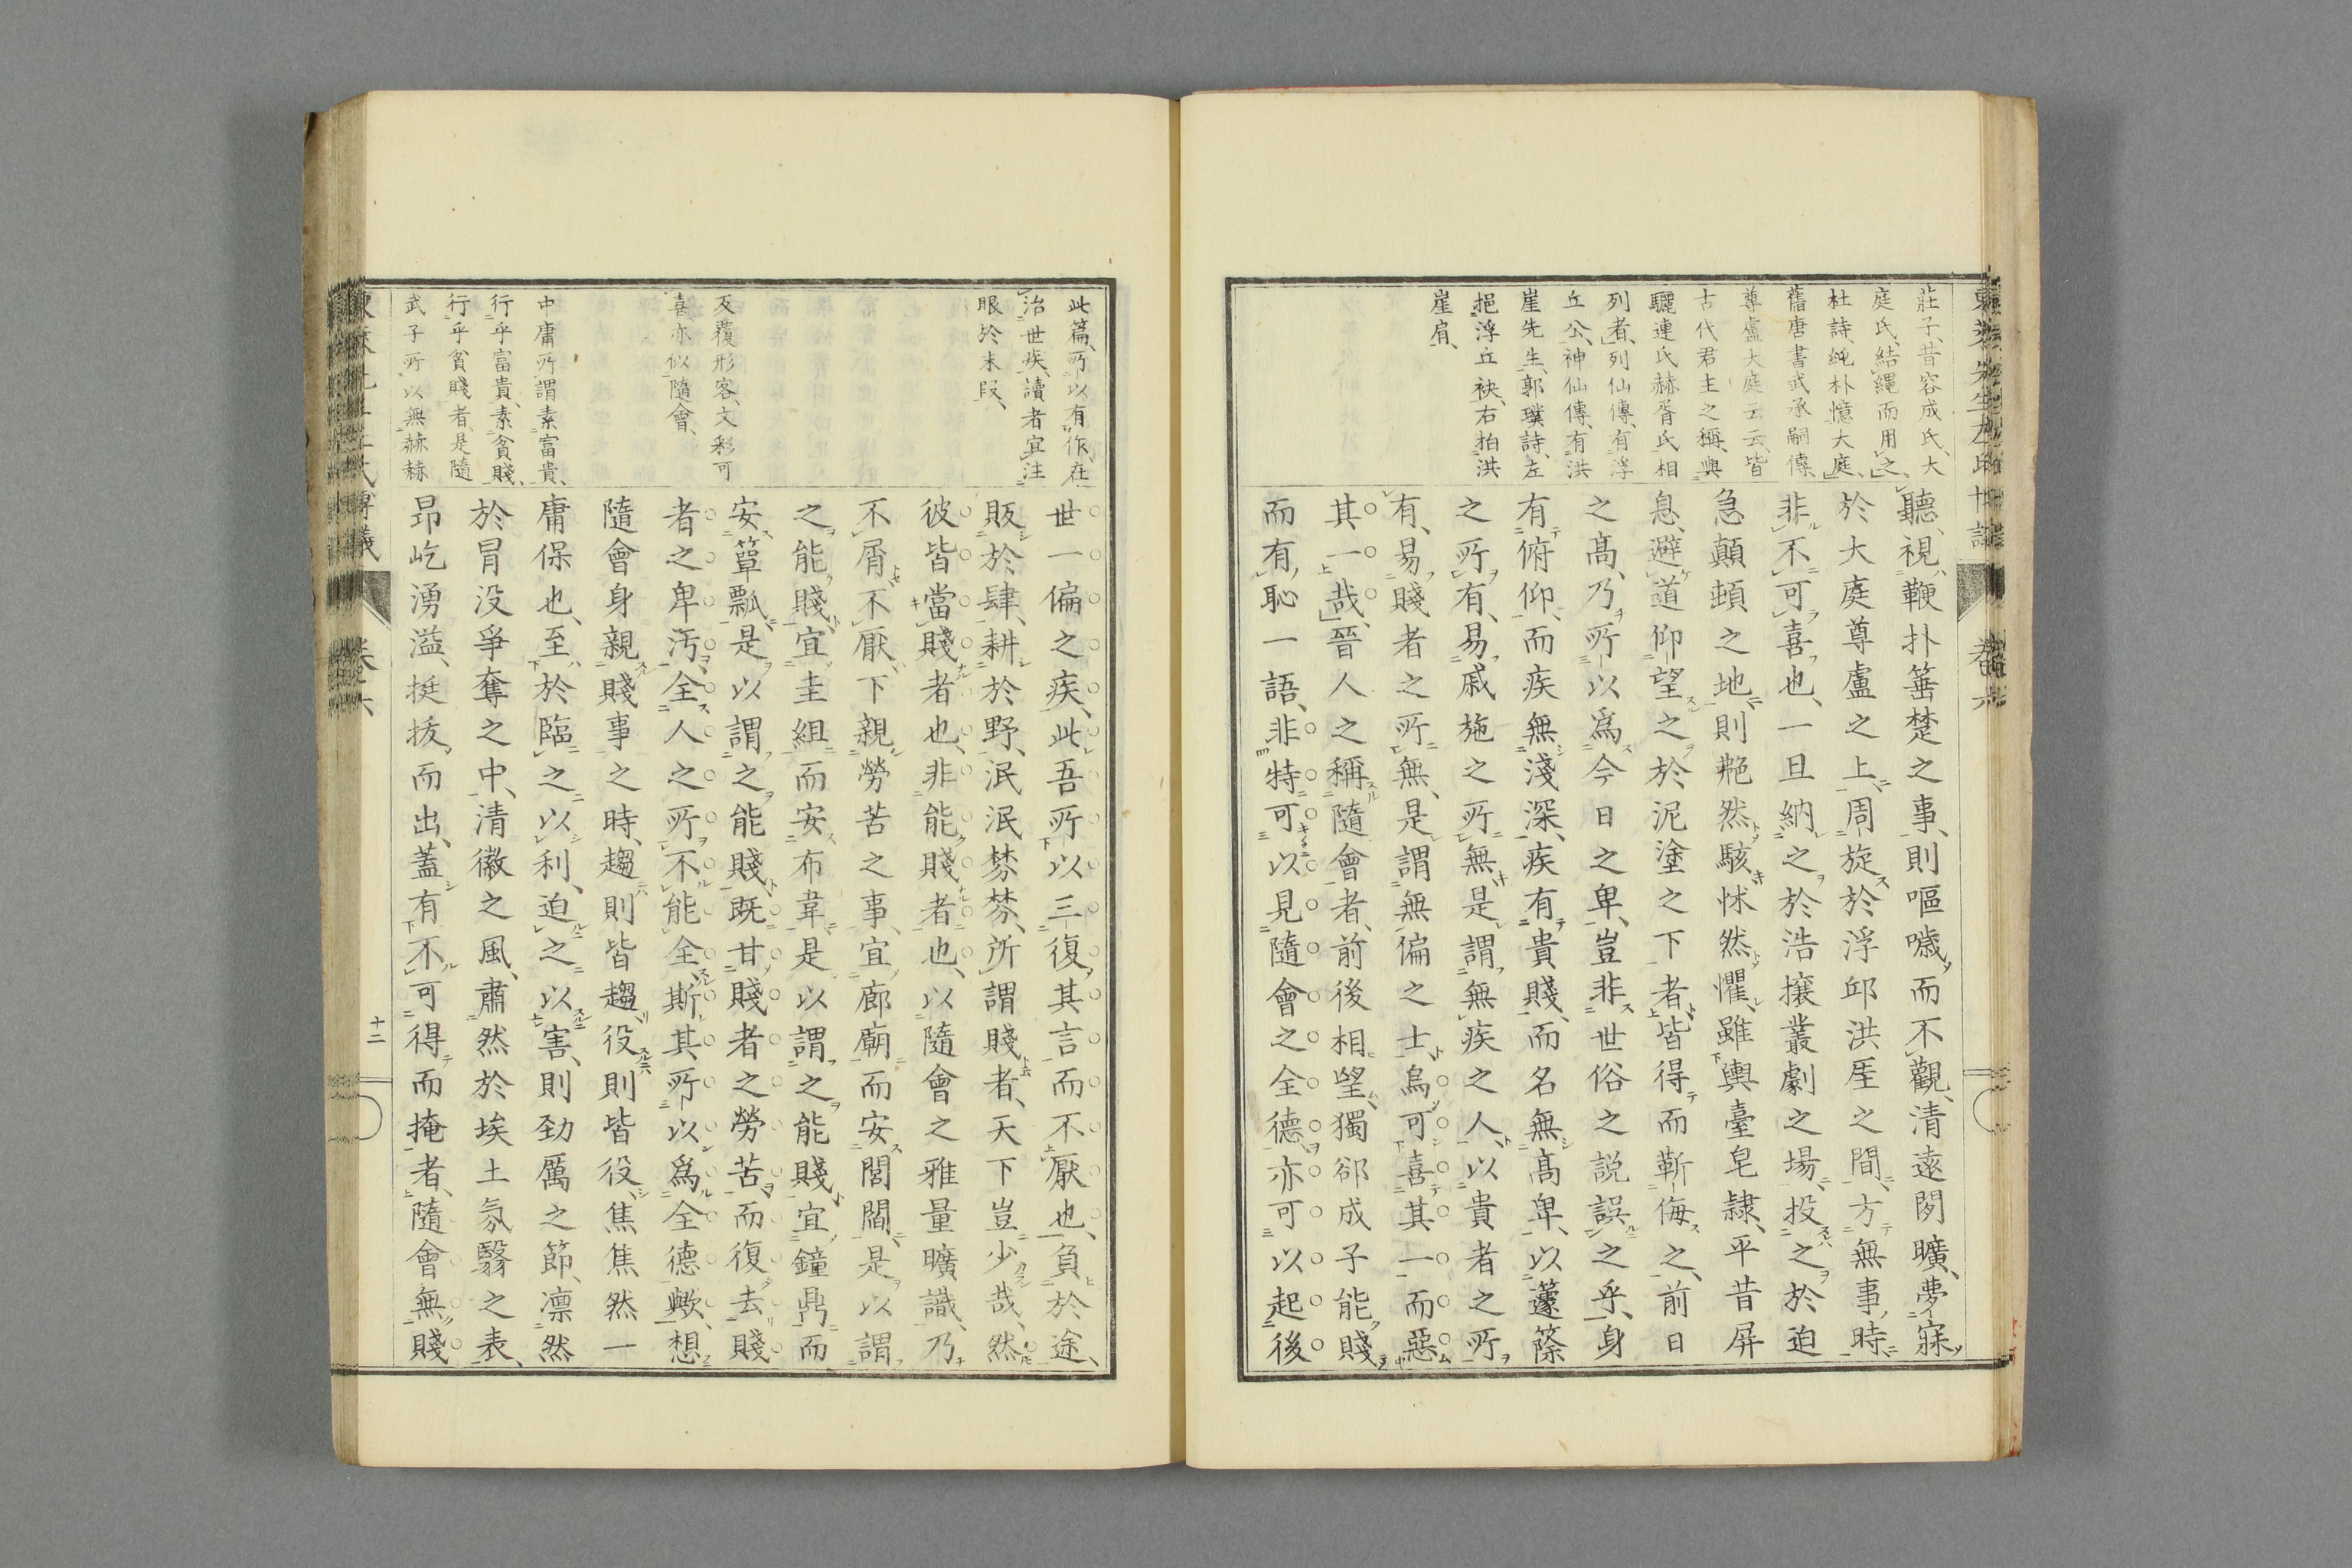 莊子、昔容成氏、大
庭氏、結繩而用之、
杜詩、純朴憶大庭、
舊唐書武承嗣傳、
尊盧大庭云云、皆
古代君主之稱、與
驪連氏赫胥氏相
列者、列仙傳、有浮
丘公、神仙傳、有洪
崖先生、郭璞詩、左
挹浮丘袂、右拍洪
崖肩、
聽、視鞭扑箠楚之事、則嘔噦而不觀、清遠閎曠、夢寐
於大庭尊盧之上、周旋於浮邱洪厓之間、方無事時、
非不可喜也、一旦納之於浩攘叢劇之場、投之於迫
急顛頓之地、則艴然駭怵然懼、雖輿臺皂隸、平昔屏
息、避道仰望之於泥塗之下者、皆得而靳侮之、前日
之高、乃所以爲今日之卑、豈非世俗之說誤之乎、身
有俯仰、而疾無淺深、疾有貴賤、而名無高卑、以籧篨
之所有、易戚施之所無、是謂無疾之人、以貴者之所
有、易賤者之所無、是謂無偏之士、烏可喜其一而惡
其一哉、晉人之稱隨會者、前後相望、獨郤成子能賤
而有恥一語、非特可以見隨會之全德、亦可以起後
卷六
此篇、所以有作、在
治世疾、讀者宜注
眼於末段、
反覆形容、文彩可
喜、亦似隨會、
中庸所謂素富貴、
行乎富貴、素貧賤、
行乎貧賤者、是隨
武子所以無赫赫
世一偏之疾、此吾所以三復其言而不厭也、負於途、
販於肆、耕於野、泯泯棼棼、所謂賤者、天下豈少哉、然
彼皆當賤者也、非能賤者也、以隨會之雅量曠識、乃
不屑不厭、下親勞苦之事、宜廊廟而安閭閻、是以謂
之能賤、宜圭組而安布韋、是以謂之能賤、宜鐘鼎而
安簞瓢、是以謂之能賤、既甘賤者之勞苦、而復去賤
者之卑汚、全人之所不能全、斯其所以爲全德歟、想
隨會身親賤事之時、趨則皆趨、役則皆役、焦焦然一
庸保也、至於臨之以利、迫之以害、則劲厲之節、凛然
於冐没爭奪之中、清徽之風、肅然於埃土氛翳之表、
昂屹湧溢、挺拔而出、蓋有不可得而掩者、隨會無賤
十二